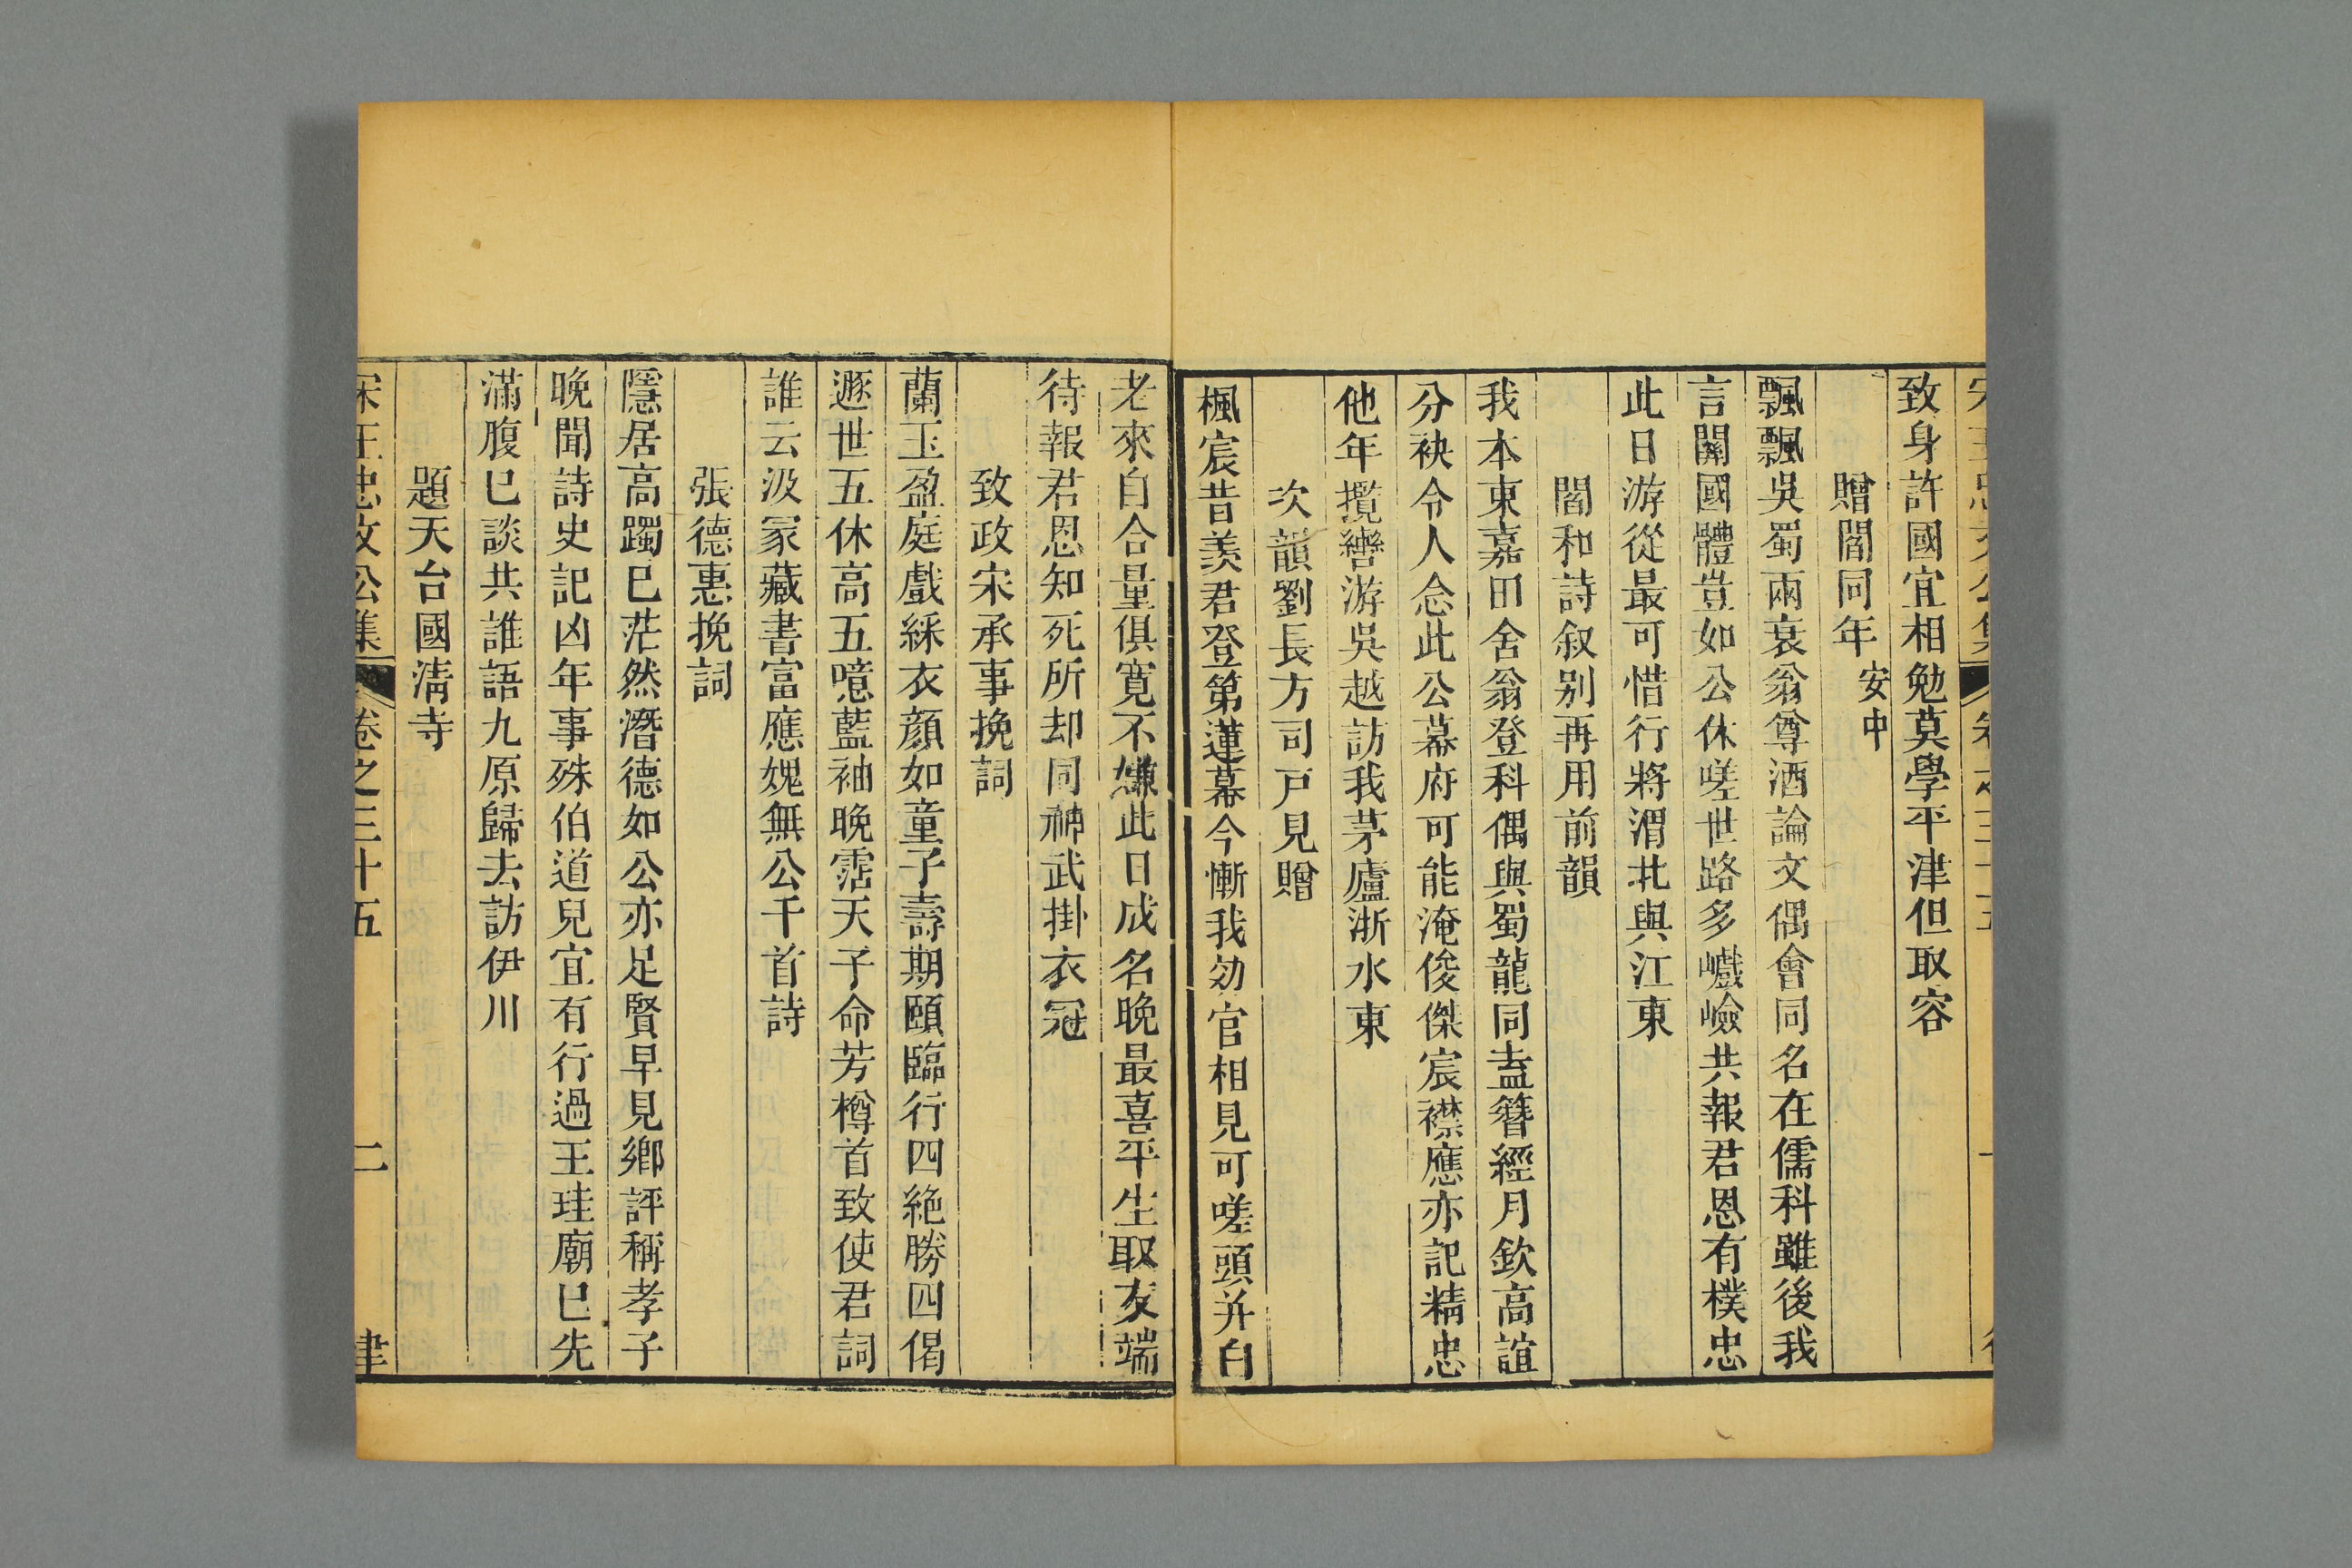 致身許國宜相勉莫學平津但取容
贈閻同年安中
飄飄吳蜀兩衰翁尊酒論文偶會同名在儒科雖後我
言關國體豈如公休嗟世路多巇嶮共報君恩有樸忠
此日游從最可惜行將渭北與江東
閻和詩叙别再用前韻
我本東嘉田舍翁登科偶與蜀龍同盍簮經月欽高誼
分袂令人念此公幕府可能淹俊傑宸襟應亦記精忠
他年攬轡游吳越訪我茅廬浙水東
次韻劉長方司戸見贈
楓宸昔羨君登第蓮幕今慚我効官相見可嗟頭并白
老來自合量俱寛不嫌此日成名晚最喜平生取友端
待報君恩知死所却同神武掛衣冠
致政宋承事挽詞
蘭玉盈庭戲綵衣顔如童子壽期頤臨行四絶勝四偈
遯世五休高五噫藍袖晚霑天子命芳樽首致使君詞
誰云汲冡藏書富應媿無公千首詩
張德惠挽詞
隱居高躅已茫然潛德如公亦足賢早見鄉評稱孝子
晚聞詩史記凶年事殊伯道兒宜有行過王珪廟已先
滿腹已談共誰語九原歸去訪伊川
題天台國淸寺
宋王忠文公集 卷之三十五 二 律